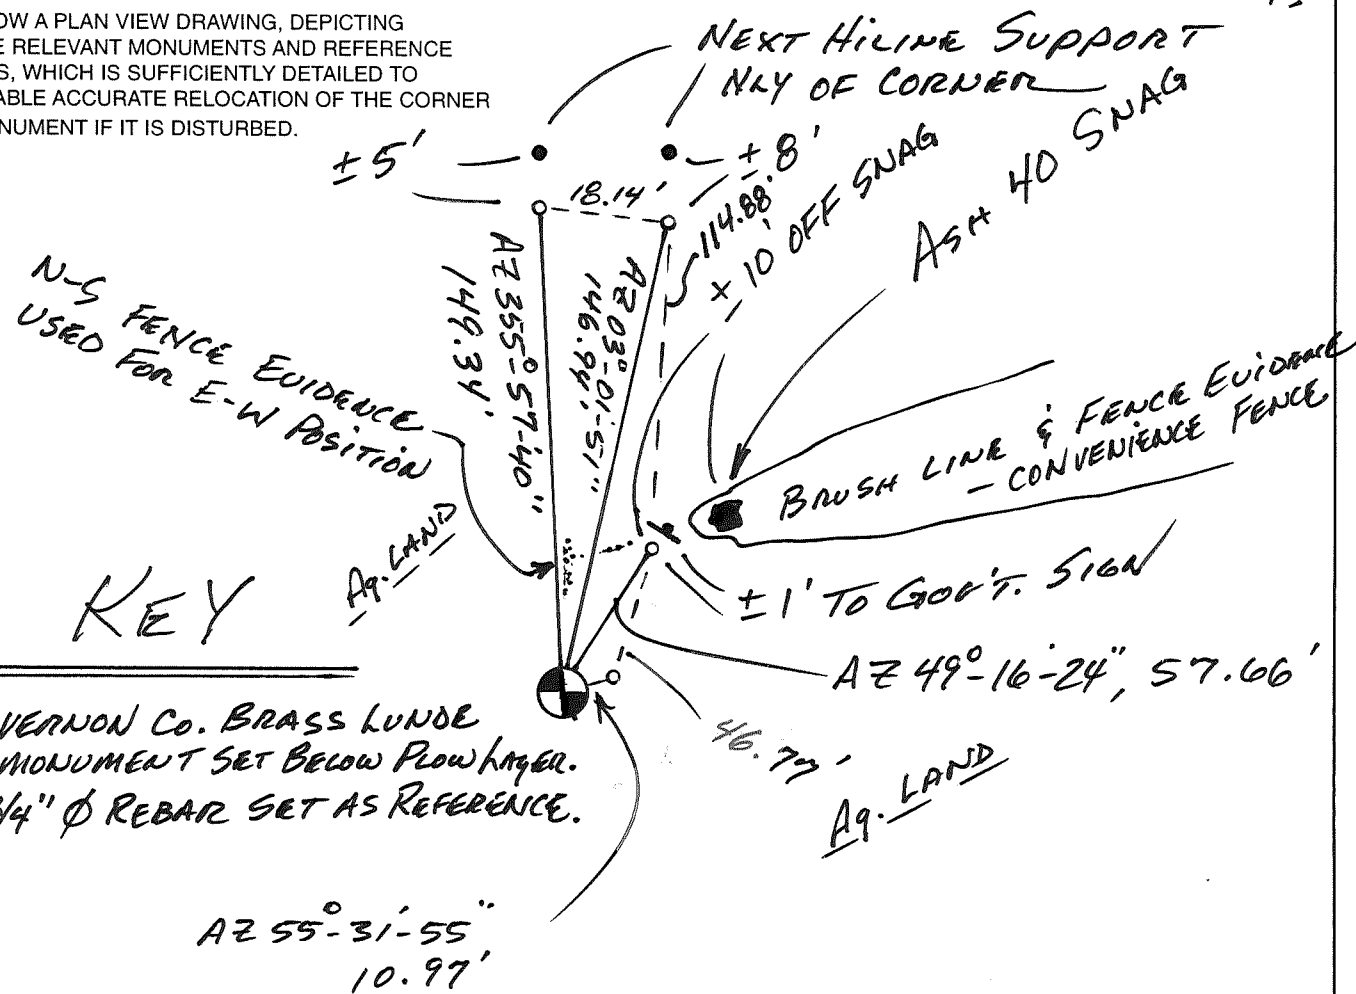 OW A PLAN VIEW DRAWING, DEPICTING
E RELEVANT MONUMENTS AND REFERENCE
S, WHICH IS SUFFICIENTLY DETAILED TO
ABLE ACCURATE RELOCATION OF THE CORNER
NUMENT IF IT IS DISTURBED.
NEXT HILINE SUPPORT
NLY OF CORNER
±5'
±8'
18.14'
114.88'
±10' OFF SNAG
ASH 40 SNAG
N-S FENCE EVIDENCE
USED FOR E-W POSITION
AZ 355°-57'-40"
149.34'
AZ 03°-01'-51"
146.94'
BRUSH LINE & FENCE EVIDENCE
- CONVENIENCE FENCE
Ag. LAND
±1' TO GOV'T. SIGN
KEY
AZ 49°-16'-24", 57.66'
VERNON CO. BRASS LUNDE
MONUMENT SET BELOW PLOW LAYER.
3/4" Ø REBAR SET AS REFERENCE.
Ag. LAND
AZ 55°-31'-55"
10.97'